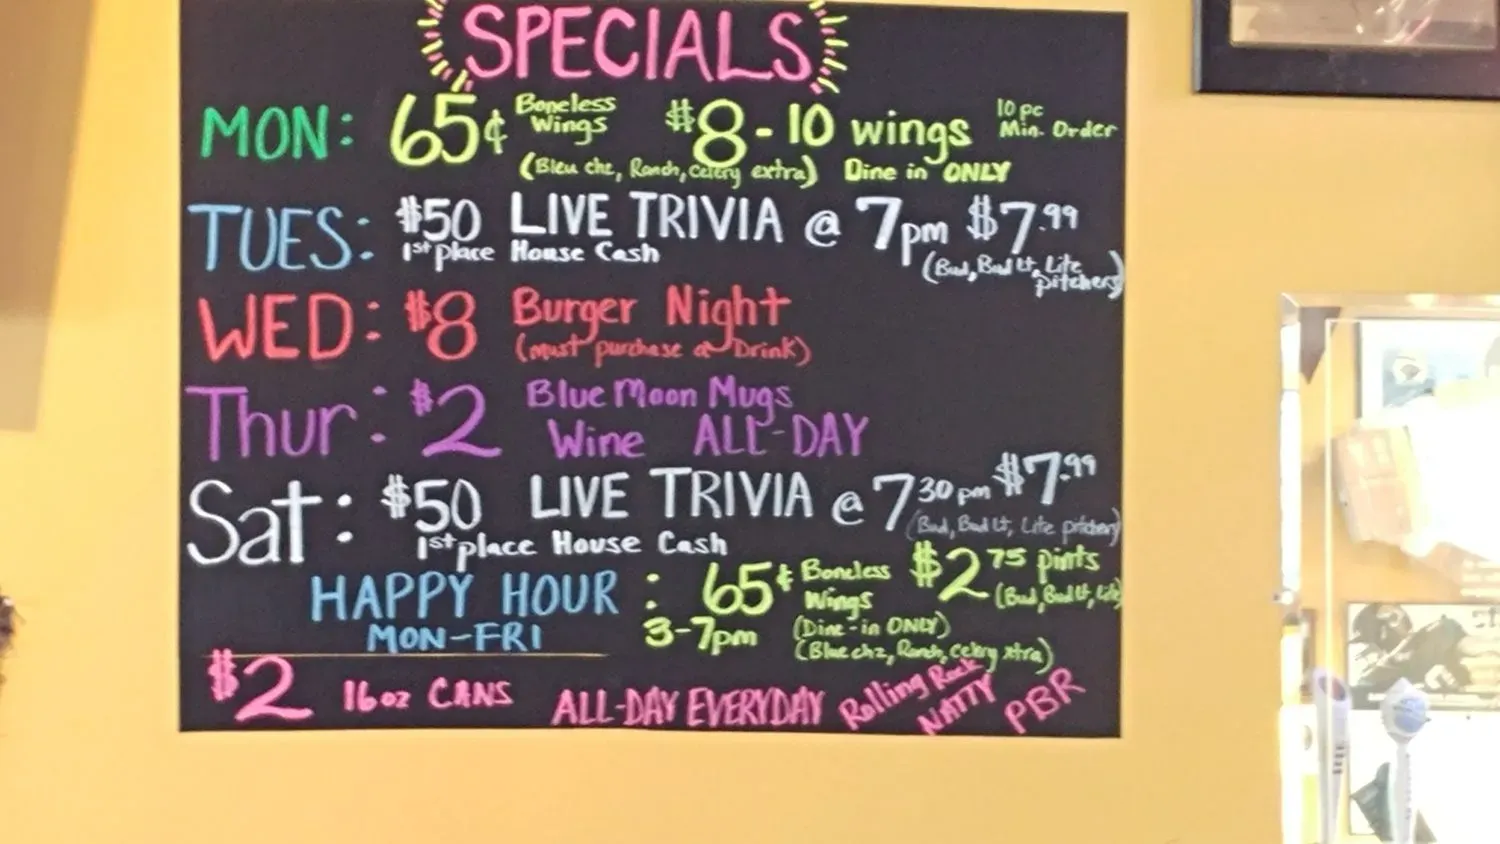 SPECIALS
MON: 65¢ Boneless Wings $8-10 wings 10 pc Min. Order
(Bleu chz, Ranch, celery extra) Dine in ONLY
TUES: $50 LIVE TRIVIA @ 7pm $7.99
1st place House Cash (Bud, Bud Lt, Lite pitchers)
WED: $8 Burger Night
(must purchase a Drink)
Thur: $2 Blue Moon Mugs
Wine ALL-DAY
Sat: $50 LIVE TRIVIA @ 7 30 pm $7.99
1st place House Cash (Bud, Bud Lt, Lite pitchers)
HAPPY HOUR : 65¢ Boneless Wings $2 75 pints
MON-FRI 3-7pm (Dine-in ONLY) (Bud, Bud Lt, Lite)
(Blue chz, Ranch, Celery xtra)
$2 16oz CANS ALL-DAY EVERYDAY Rolling Rock NATTY PBR